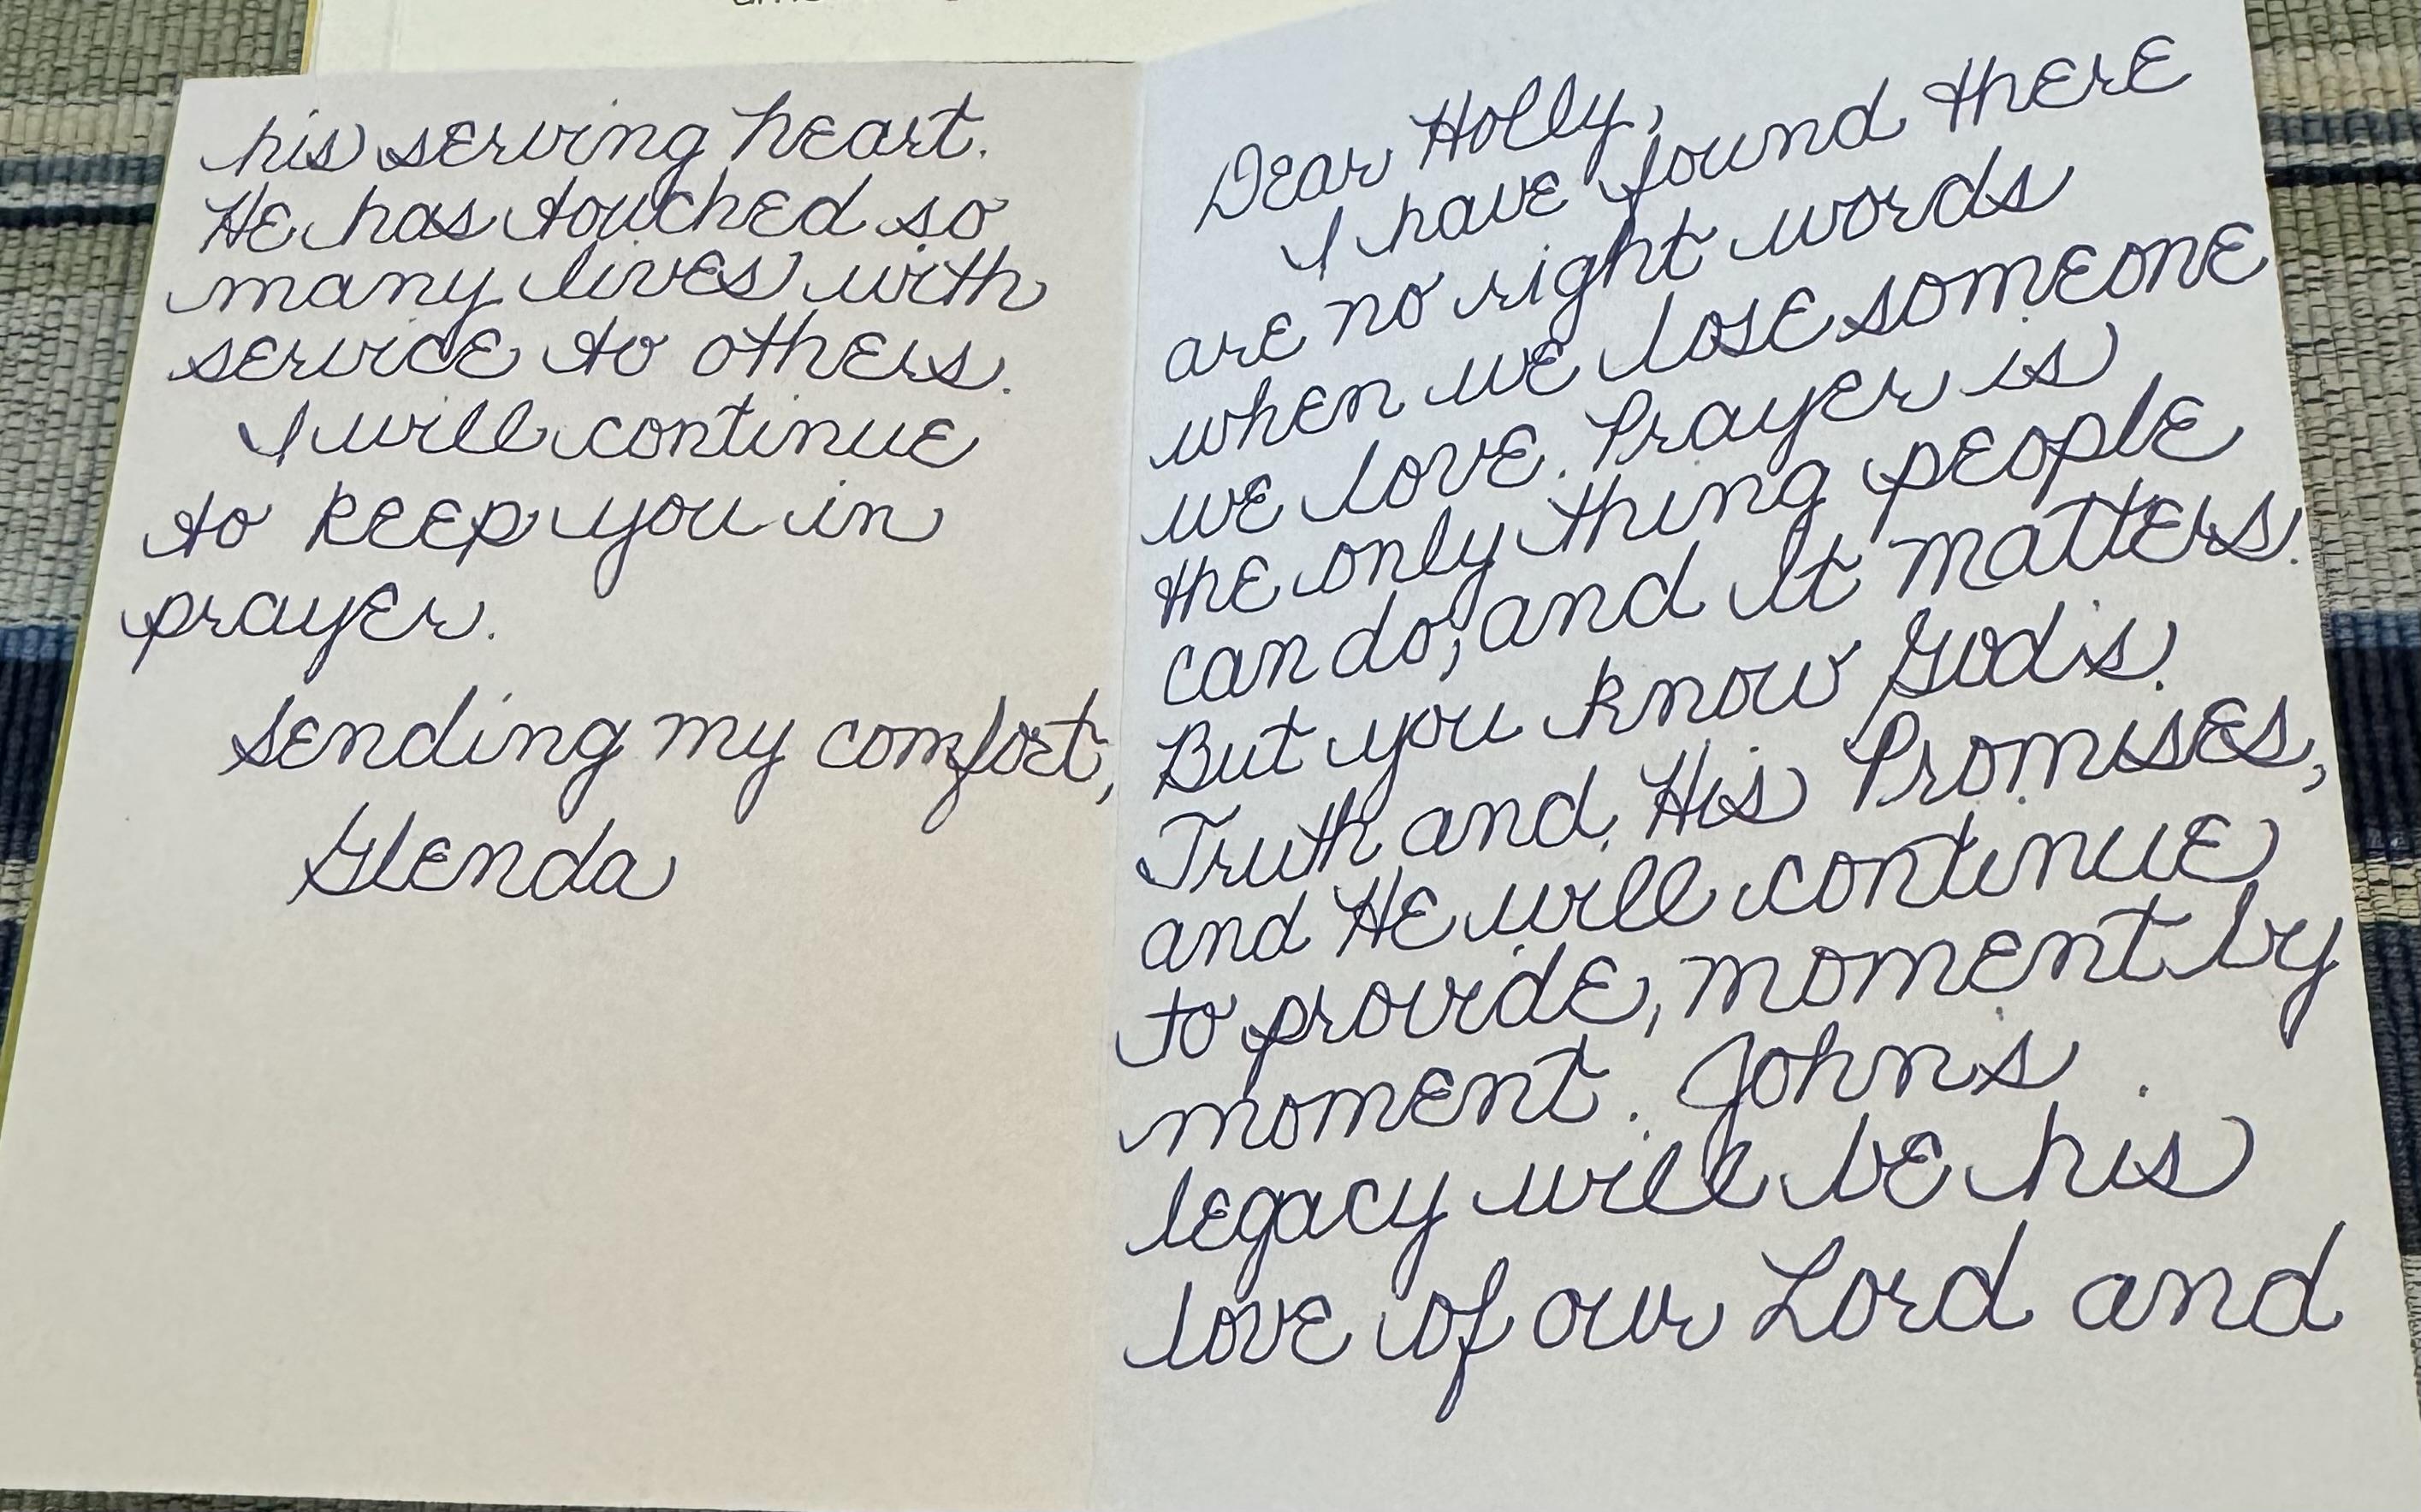 Dear Holly,
I have found there
are no right words
when we lose someone
we love. Prayer is
the only thing people
can do, and it matters.
But you know God's
Truth and His Promises,
and He will continue
to provide, moment by
moment. Johns
legacy will be his
love of our Lord and
his serving heart.
He has touched so
many lives with
service to others.
I will continue
to keep you in
prayer.
Sending my comfort,
Glenda